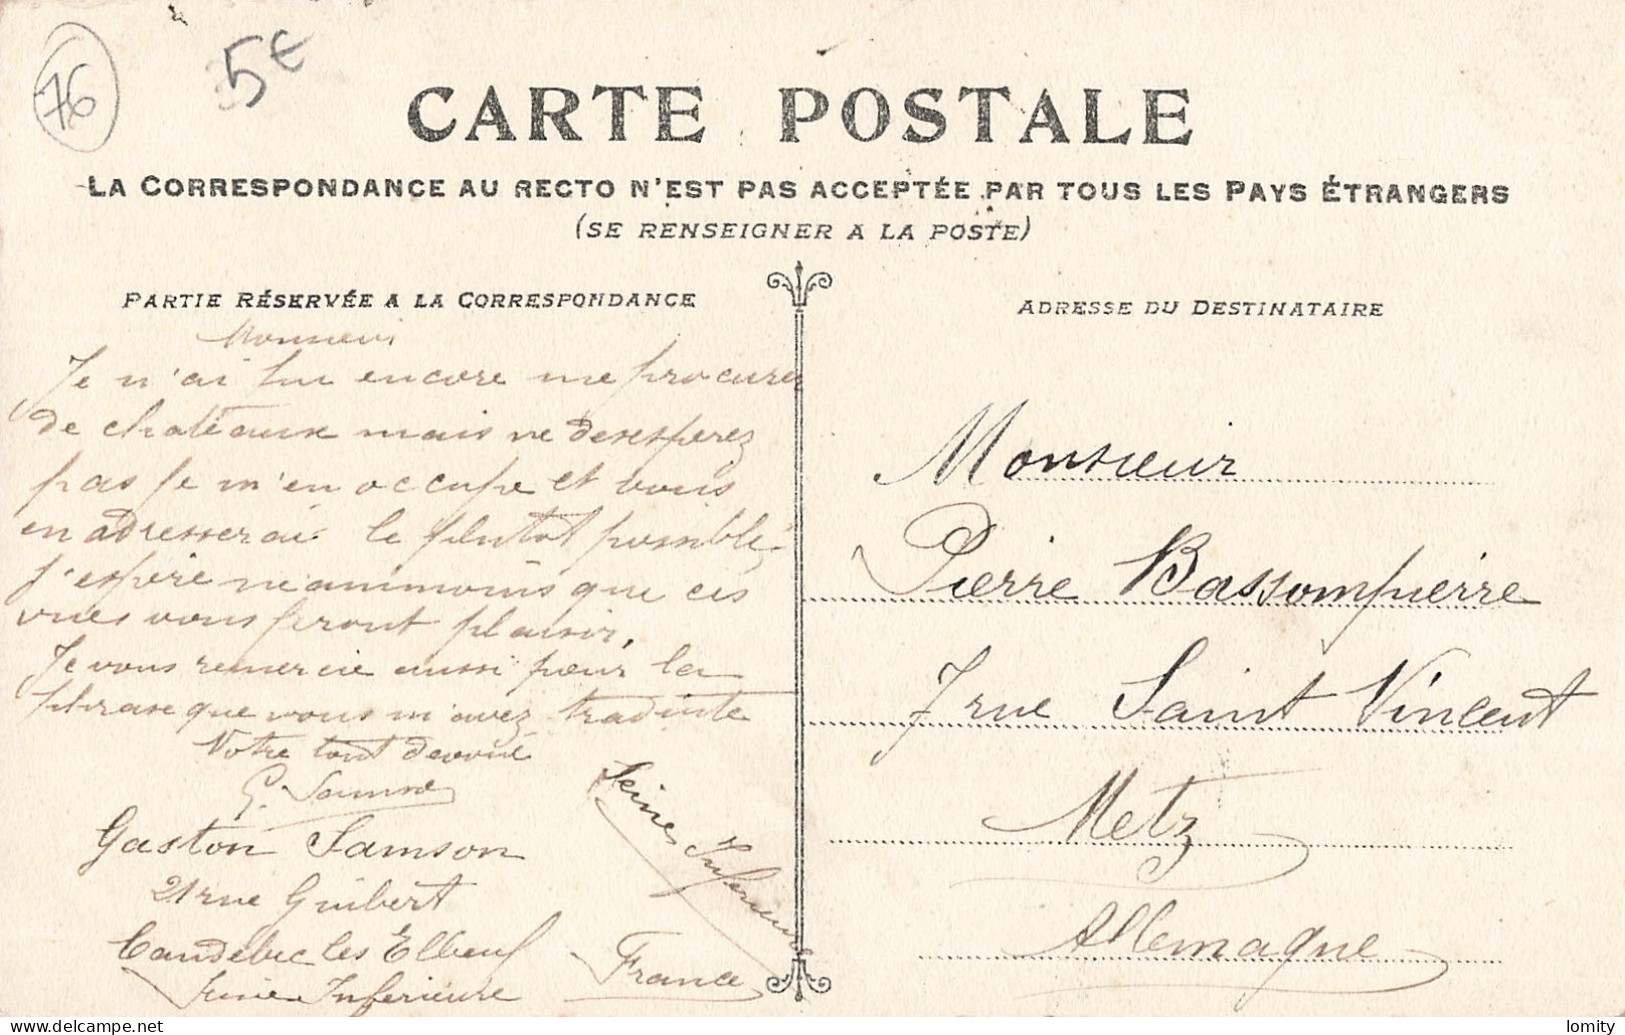 76
5€
CARTE POSTALE
LA CORRESPONDANCE AU RECTO N'EST PAS ACCEPTÉE PAR TOUS LES PAYS ÉTRANGERS
(SE RENSEIGNER A LA POSTE)
PARTIE RÉSERVÉE A LA CORRESPONDANCE
Monsieur
Je n'ai pu encore me procurer
de chateaux mais ne desesperez
pas je m'en occupe et vous
en adresserai le plutot possible,
j'espère néammoins que ces
vues vous feront plaisir.
Je vous remercie aussi pour la
phrase que vous m'avez traduite
Votre tout devoué
G. Samson
Gaston Samson
21 rue Guibert
Caudebec les Elbeuf
Seine Inférieure
Seine Inferieure
France
ADRESSE DU DESTINATAIRE
Monsieur
Pierre Bassompierre
7 rue Saint Vincent
Metz
Allemagne
delcampe.net
lomity